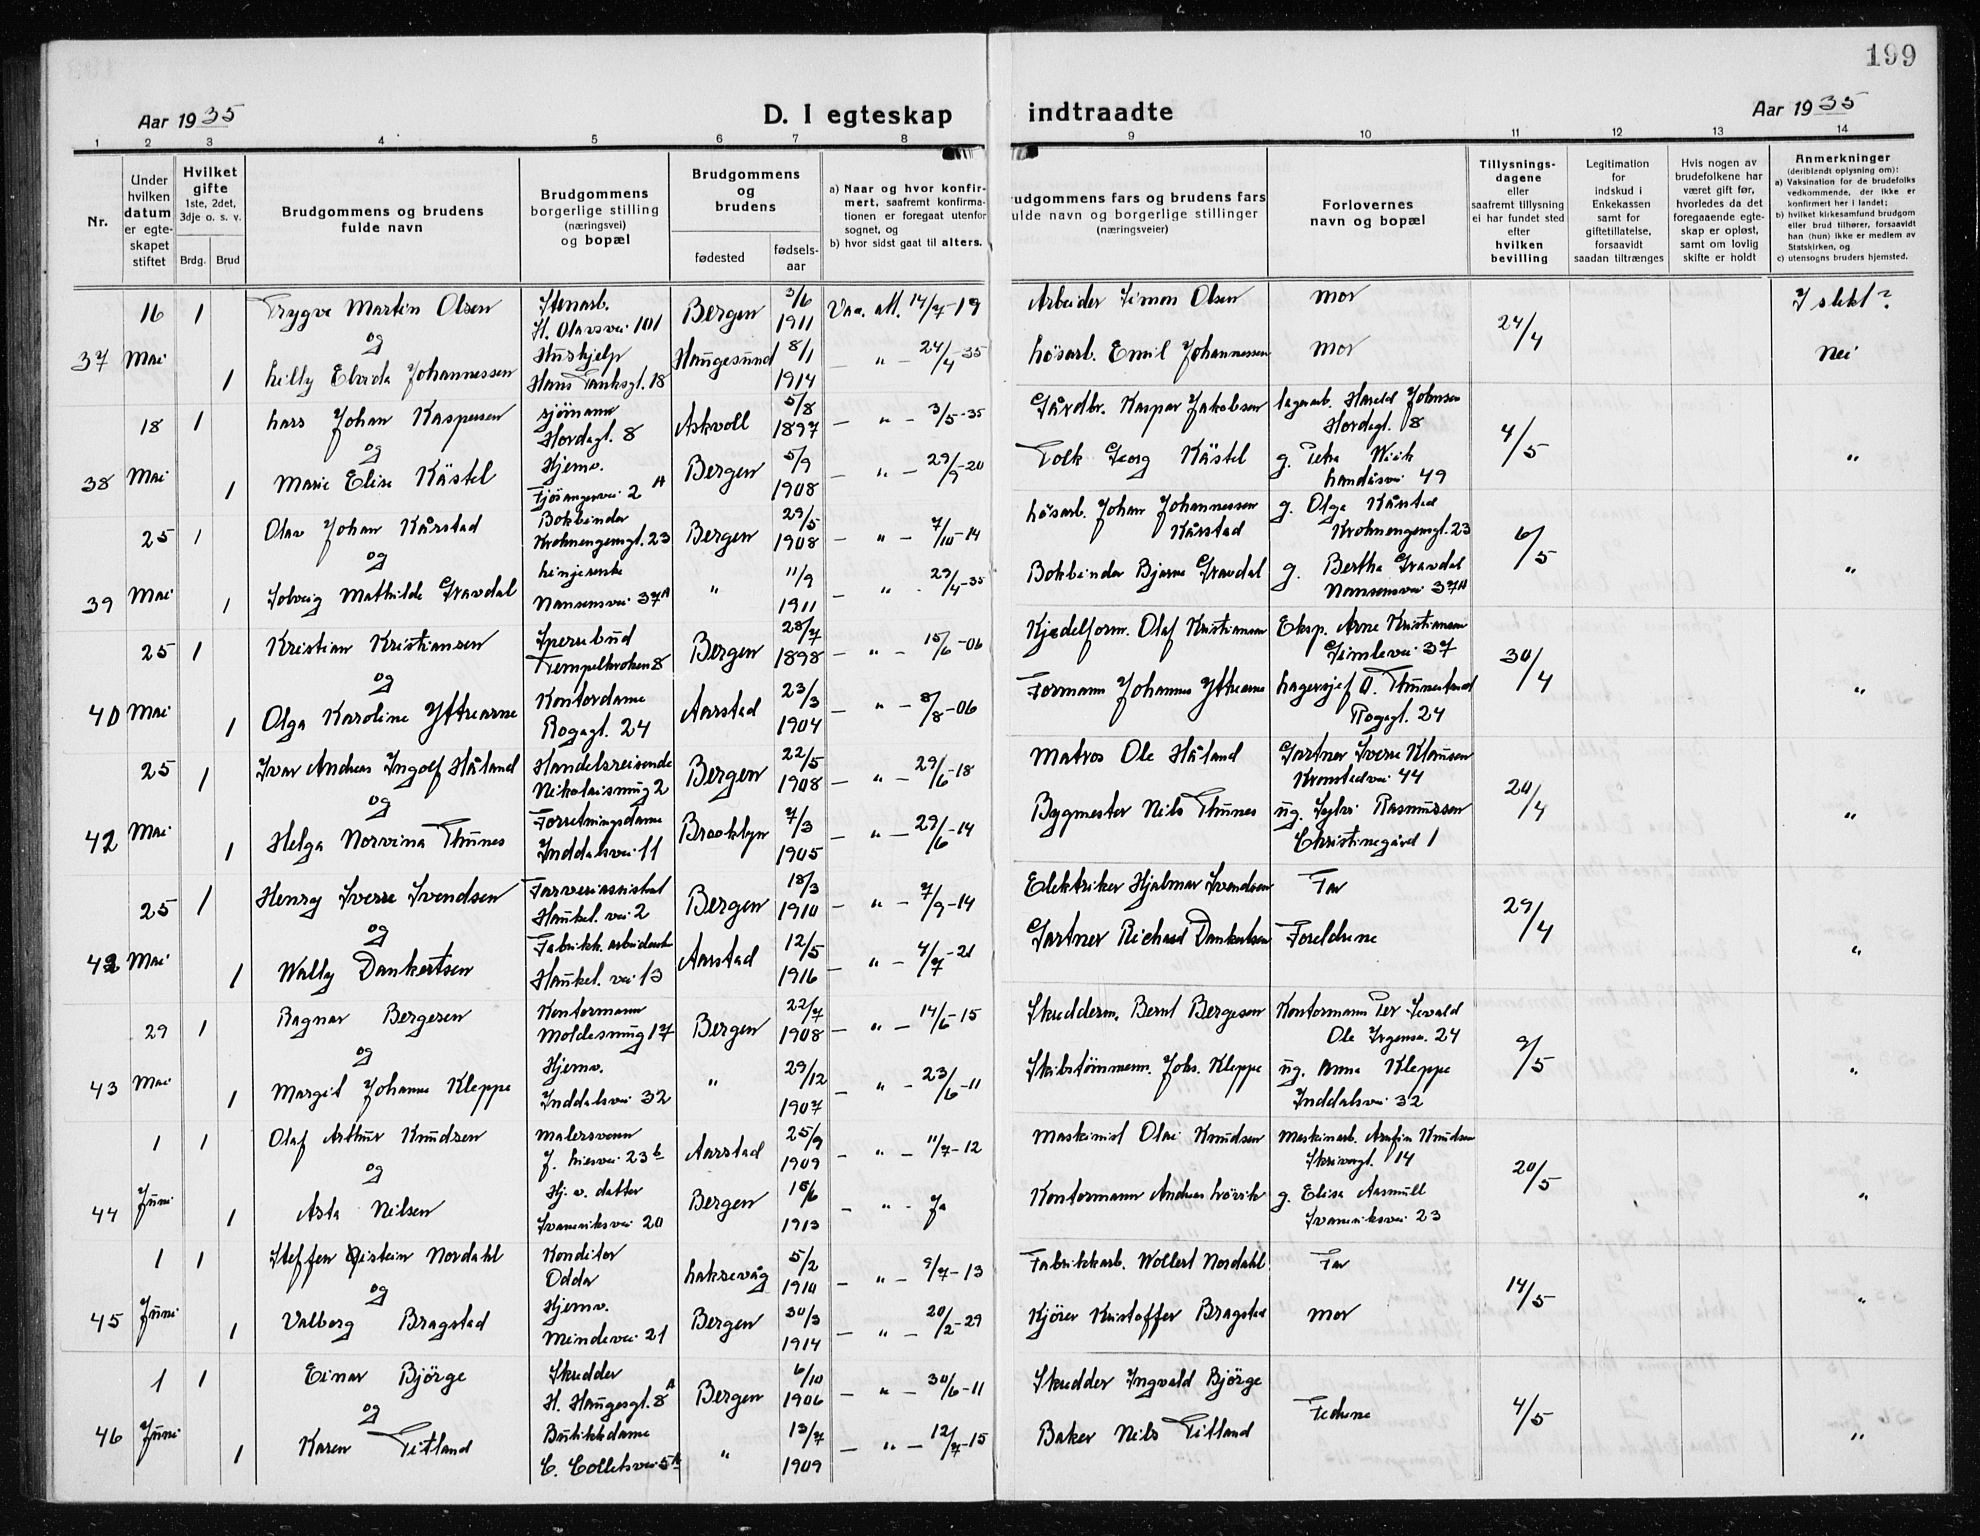 199
Aar 1935
D. I egteskap
indtraadte
Aar 1935
1 2 3 4 5 6 7 8 9 10 11 12 13 14
Nr.
Under hvilken datum er egteskapet stiftet
Hvilket gifte 1ste, 2det, 3dje o. s. v.
Brdg. Brud
Brudgommens og brudens fulde navn
Brudgommens borgerlige stilling (næringsvei) og bopæl
Brudgommens og brudens
fødested
fødselsaar
a) Naar og hvor konfirmert, saafremt konfirmationen er foregaat utenfor sognet, og
b) hvor sidst gaat til alters.
udgommens fars og brudens fars
ulde navn og borgerlige stillinger
(næringsveier)
Forlovernes navn og bopæl
Tillysningsdagene eller saafremt tillysning ei har fundet sted efter hvilken bevilling
Legitimation for indskud i Enkekassen samt for giftetillatelse, forsaavidt saadan tiltrænges
Hvis nogen av brudefolkene har været gift før, hvorledes da det foregaaende egteskap er opløst, samt om lovlig skifte er holdt
Anmerkninger
(deriblandt oplysning om):
a) Vaksination for de brudefolks vedkommende, der ikke er konfirmert her i landet;
b) hvilket kirkesamfund brudgom eller brud tilhører, forsaavidt han (hun) ikke er medlem av Statskirken, og
c) utensogns bruders hjemsted.
37 16 Mai 1 Trygve Martin Olsen Stenarb. H. Olavsvei 101 Bergen 3/6 1911 Vac. att. 14/7-19 Arbeider Simon Olsen Mor 24/4 I slekt?
og
1 Lilly Elvida Johannessen Hushjelp Hans Tanksgt. 18 Haugesund 8/1 1914 " - 24/4-35 Løsarb. Emil Johannessen Mor Nei
38 18 Mai 1 Lars Johan Kaspersen Sjømann Hordagt. 8 Askvoll 5/8 1897 - " - 3/5-35 Gårdbr. Kaspar Jakobsen Lagerarb. Harald Johnsen Hordagt. 8 4/5 "
og
1 Marie Elise Kästel Hjemv. Fjösangervei 2 A Bergen 5/9 1908 - " - 29/9-20 Tolk Georg Kästel g. Petra Wiik Landåsvei 49
39 25 Mai 1 Olav Johan Kårstad Bokbinder Krohnengemgt. 23 Bergen 29/5 1908 - " - 7/10-14 Løsarb. Johan Johannessen Kårstad g. Olga Kårstad Krohnengemgt. 23 6/5 "
og
1 Solveig Mathilde Gravdal Linjerenke Nansensvei 37A " 11/9 1911 - " - 29/4-35 Bokbinder Bjarne Gravdal g. Bertha Gravdal Nansensvei 37A
40 25 Mai 1 Kristian Kristiansen Sperrebud Tempelkroken 8 Bergen 28/7 1898 - " - 15/6-06 Kjedelform. Olaf Kristiansen Eksp. Arne Kristiansen Gimlevei 37 30/4 "
og
1 Olga Karoline Yttrearne Kontordame Rogagt. 24 Aarstad 23/3 1904 - " - 8/8-06 Formann Johannes Yttrearne Lagersjef O. Thunestand Rogagt. 24
42 25 Mai 1 Ivar Andreas Ingolf Håland Handelsreisende Nikolaismug 2 Bergen 22/5 1908 - " - 29/6-18 Matros Ole Håland Gartner Sverre Klausen Kronstadvei 44 20/4 "
og
1 Helga Norvina Thunes Forretningsdame Inddalsvei 11 Brooklyn 7/3 1905 - " - 29/6-14 Bygmester Nils Thunes ug. Sylvi Rasmussen Christinegård 1
42 25 Mai 1 Henry Sverre Svendsen Farveriassistent Haukel. vei 2 Bergen 18/3 1910 - " - 7/9-14 Elektriker Hjalmar Svendsen Far 29/4 "
og
1 Wally Dankertsen Fabrikk. arbeiderske Haukel. vei 13 Aarstad 12/5 1916 - " - 4/7-21 Gartner Richard Dankertsen Foreldrene
43 29 Mai 1 Ragnar Bergesen Kontormann Moldesmug 17 Bergen 22/7 1908 - " - 14/6-15 Skudderm. Bernt Bergesen Kontormann Per Sevald Ole Irgensv. 24 9/5 "
og
1 Margit Johanne Kleppe Hjemv. Inddalsvei 32 " 29/12 1907 - " - 23/6-11 Skibstømmerm. Johs. Kleppe ug. Anna Kleppe Inddalsvei 32
44 1 Juni 1 Olaf Arthur Knudsen Malersvenn J. Liesvei 23b Aarstad 25/9 1909 - " - 11/7-12 Maskinist Olai Knudsen Maskinarb. Arnfin Knudsen Skrivergt. 14 20/5 "
og
1 Asta Nilsen Hj. v. datter Ivareriksvei 20 Bergen 18/6 1913 - " - Ja Kontormann Andreas Løvik g. Elisa Aasmull Ivareriksvei 23
45 1 Juni 1 Steffen Øistein Nordahl Konditor Odda Laksevåg 5/2 1910 - " - 9/7-13 Fabrikkarb. Wollert Nordahl Far 14/5 "
og
1 Valborg Bragstad Hjemv. Mindevei 21 Bergen 30/3 1914 - " - 20/2-29 Kjører Kristoffer Bragstad Mor
46 1 Juni 1 Einar Bjørge Skredder H. Haugesgt. 8A Bergen 6/10 1906 - " - 30/6-11 Skredder Ingvald Bjørge Fedrene 4/5 "
og
1 Karen Titland Butikkdame C. Colletsvei 5A " 13/7 1909 - " - 12/7-15 Baker Nils Titland